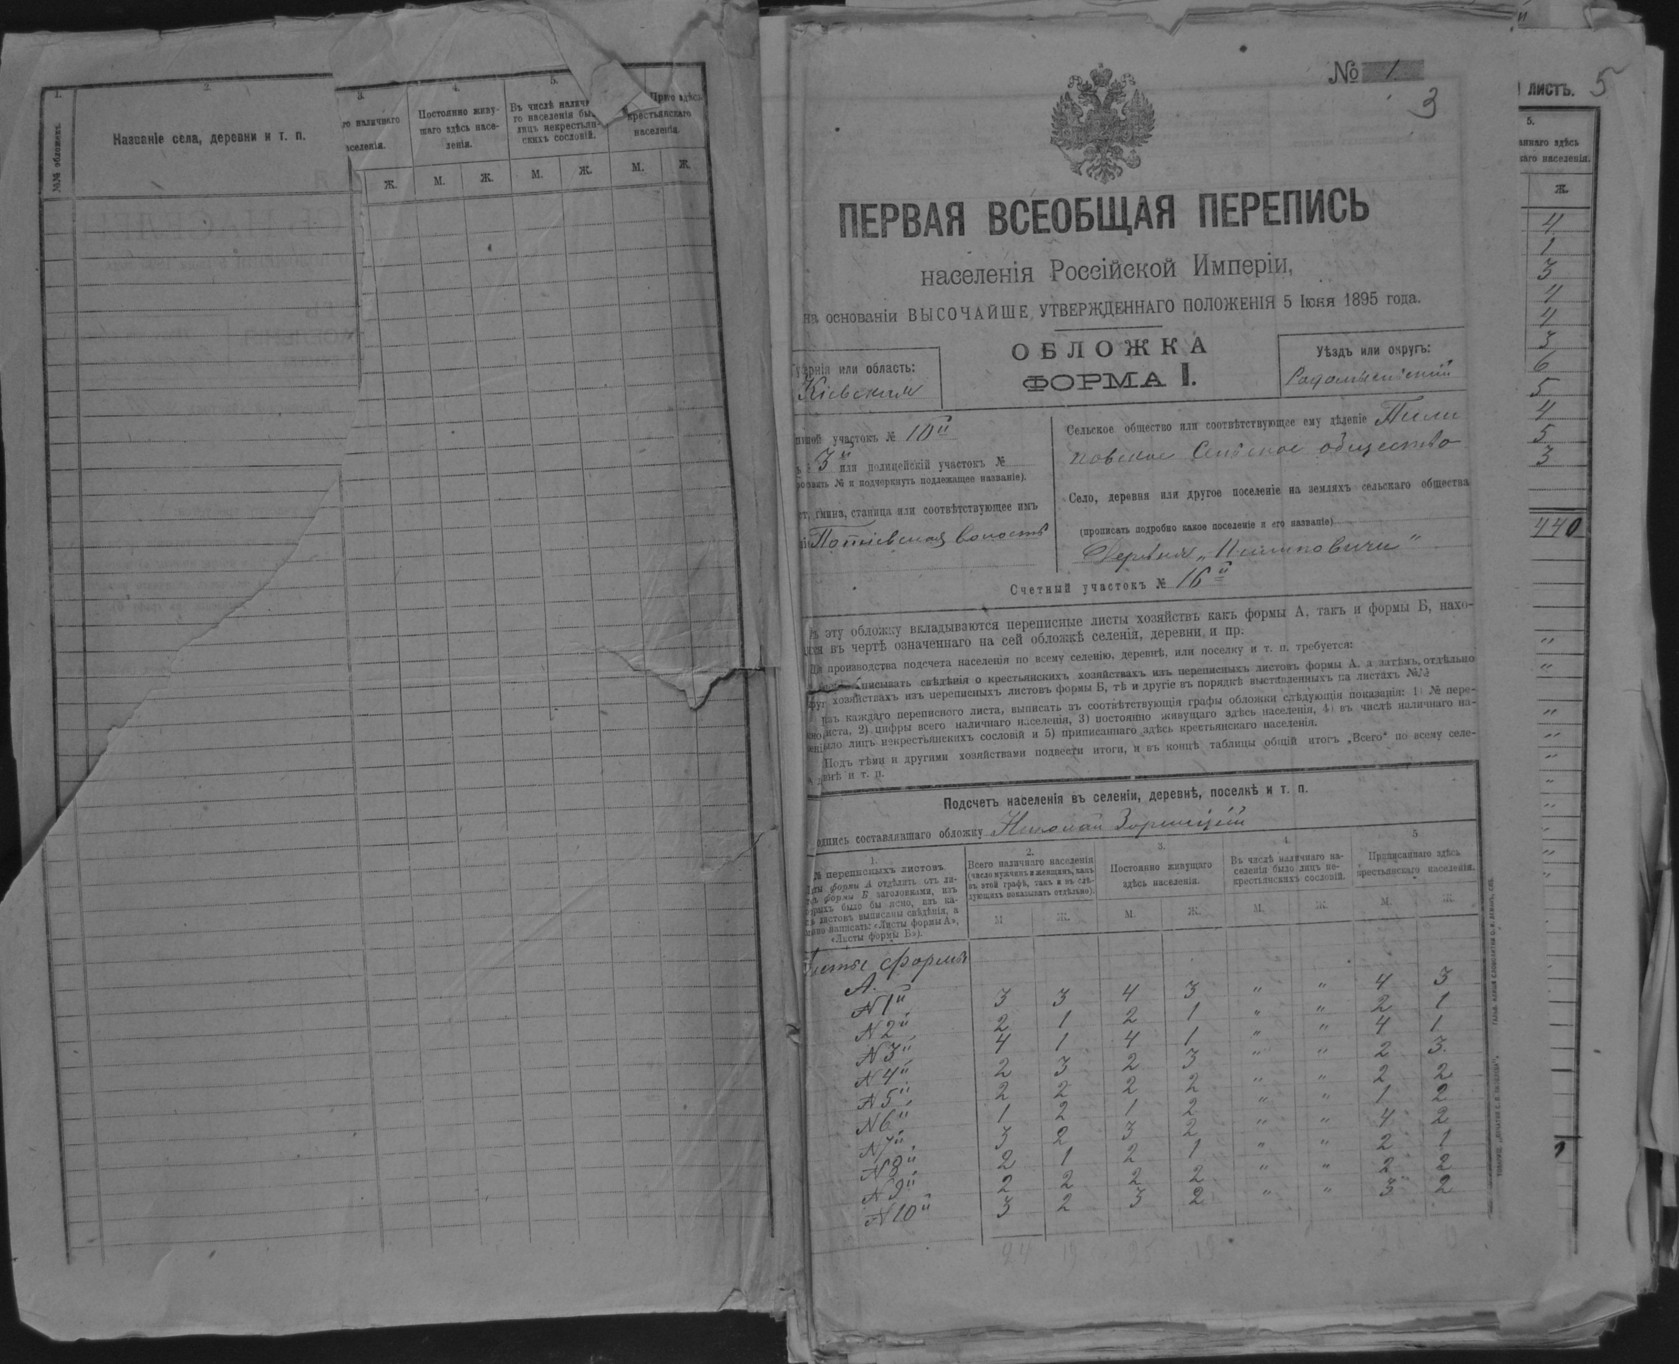 1.
№№ обложекъ.
2.
Названіе села, деревни и т. п.
3.
наличнаго
населенія.
Ж.
4.
Постоянно живу-
щаго здѣсь насе-
ленія.
М. Ж.
5.
Въ числѣ налич
го населенія бы
лицъ некрестьян-
скихъ сословій.
М. Ж.
крестьянскаго
населенія.
М. Ж.
№ 1
3
ПЕРВАЯ ВСЕОБЩАЯ ПЕРЕПИСЬ
населенія Россійской Имперіи,
на основаніи ВЫСОЧАЙШЕ УТВЕРЖДЕННАГО ПОЛОЖЕНІЯ 5 Іюня 1895 года.
ОБЛОЖКА
ФОРМА I.
Губернія или область:
Кіевская
Уѣздъ или округъ:
Радомысльскій
участокъ № 10й
3й или полицейскій участокъ №
№ и подчеркнуть подлежащее названіе).
гмина, станица или соотвѣтствующее имъ
Потіевская волость
Сельское общество или соотвѣтствующее ему дѣленіе Пили
повское Сельское общество
Село, деревня или другое поселеніе на земляхъ сельскаго общества
(прописать подробно какое поселеніе и его названіе)
Деревня „Пилиповичи“
Счетный участокъ № 16й
эту обложку вкладываются переписные листы хозяйствъ какъ формы А, такъ и формы Б, нахо-
въ чертѣ означеннаго на сей обложкѣ селенія, деревни, и пр.
производства подсчета населенія по всему селенію, деревнѣ, или поселку и т. п. требуется:
писывать свѣдѣнія о крестьянскихъ хозяйствахъ изъ переписныхъ листовъ формы А, а затѣмъ отдѣльно
хозяйствахъ изъ переписныхъ листовъ формы Б, тѣ и другіе въ порядкѣ выставленныхъ на листахъ №№
изъ каждаго переписного листа, выписать въ соотвѣтствующія графы обложки слѣдующія показанія: 1) № пере-
листа, 2) цифры всего наличнаго населенія, 3) постоянно живущаго здѣсь населенія, 4) въ числѣ наличнаго на-
было лицъ некрестьянскихъ сословій и 5) приписаннаго здѣсь крестьянскаго населенія.
Подъ тѣми и другими хозяйствами подвести итоги, и въ концѣ таблицы общій итогъ „Всего“ по всему селе-
и т. п.
Подсчетъ населенія въ селеніи, деревнѣ, поселкѣ и т. п.
подпись составлявшаго обложку Николай
1.
№ переписныхъ листовъ
формы А отдѣлить отъ ли-
формы Б заголовками, изъ
было бы ясно, изъ ка-
листовъ выписаны свѣдѣнія, а
написать: «Листы формы А»,
«Листы формы Б»).
2.
Всего наличнаго населенія
(число мужчинъ и женщинъ, какъ
въ этой графѣ, такъ и въ слѣ-
дующихъ показывать отдѣльно).
М. Ж.
3.
Постоянно живущаго
здѣсь населенія.
М. Ж.
4.
Въ числѣ наличнаго на-
селенія было лицъ не-
крестьянскихъ сословій.
М. Ж.
5
Приписаннаго здѣсь
крестьянскаго населенія.
М. Ж.
Листы формы
А.
№1й 3 3 4 3 „ „ 4 3
№2й 2 1 2 1 „ „ 2 1
№3й 4 1 4 1 „ „ 4 1
№4й 2 3 2 3 „ „ 2 3
№5й 2 2 2 2 „ „ 2 2
№6й 1 2 1 2 „ „ 1 2
№7й 3 2 3 2 „ „ 4 2
№8й 2 1 2 1 „ „ 2 1
№9й 2 2 2 2 „ „ 2 2
№10й 3 2 3 2 „ „ 3 2
24 19 25 19
ЛИСТЪ. 5
5.
здѣсь
населенія.
Ж.
4
1
3
4
4
3
6
5
4
5
3
440
„
„
„
„
„
„
„
„
„